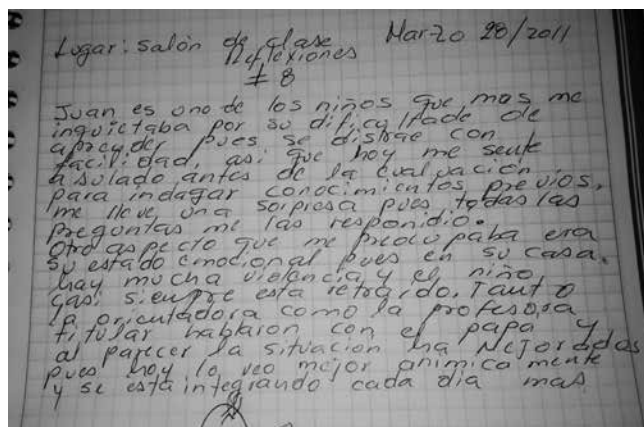 Lugar: salón de clase Marzo 28/2011
Reflexiones
# 8
Juan es uno de los niños que mas me
inquietaba por su dificultade de
aprender pues se distrae con
facilidad, asi que hoy me sente
a su lado antes de la evaluación
para indagar conocimientos previos,
me lleve una sorpresa pues todas las
preguntas me las respondio.
Otro aspecto que me preocupaba era
su estado emocional pues en su casa
hay mucha violencia y el niño
casi siempre esta retraido. Tanto
la orientadora como la profesora
titular hablaron con el papa y
al parecer la situación ha mejorado
pues hoy lo veo mejor animicamente
y se esta integrando cada dia mas